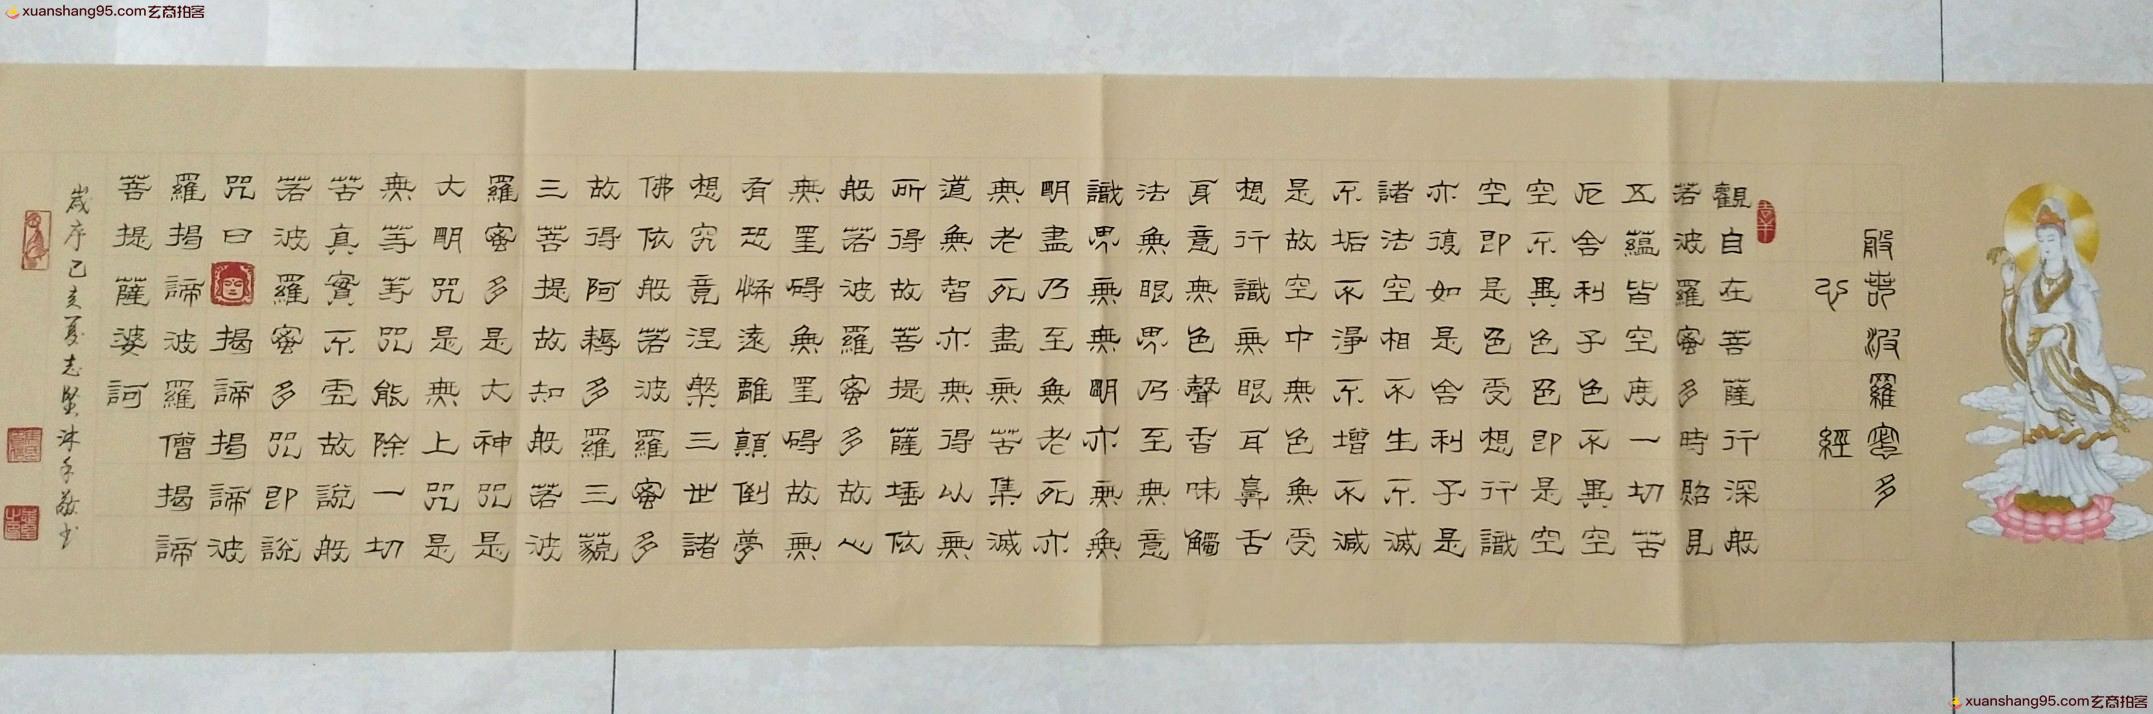 xuanshang95.com玄商拍客
般若波羅蜜多
心經
觀自在菩薩行深般
若波羅蜜多時照見
五蘊皆空度一切苦
厄舍利子色不異空
空不異色色即是空
空即是色受想行識
亦復如是舍利子是
諸法空相不生不滅
不垢不淨不增不減
是故空中無色無受
想行識無眼耳鼻舌
身意無色聲香味觸
法無眼界乃至無意
識界無無明亦無無
明盡乃至無老死亦
無老死盡無苦集滅
道無智亦無得以無
所得故菩提薩埵依
般若波羅蜜多故心
無罣碍無罣碍故無
有恐怖遠離顛倒夢
想究竟涅槃三世諸
佛依般若波羅蜜多
故得阿耨多羅三藐
三菩提故知般若波
羅蜜多是大神咒是
大明咒是無上咒是
無等等咒能除一切
苦真實不虛故說般
若波羅蜜多咒即說
咒曰揭諦揭諦波
羅揭諦波羅僧揭諦
菩提薩婆訶
歲序己亥夏志堅沐手敬书
xuanshang95.com玄商拍客